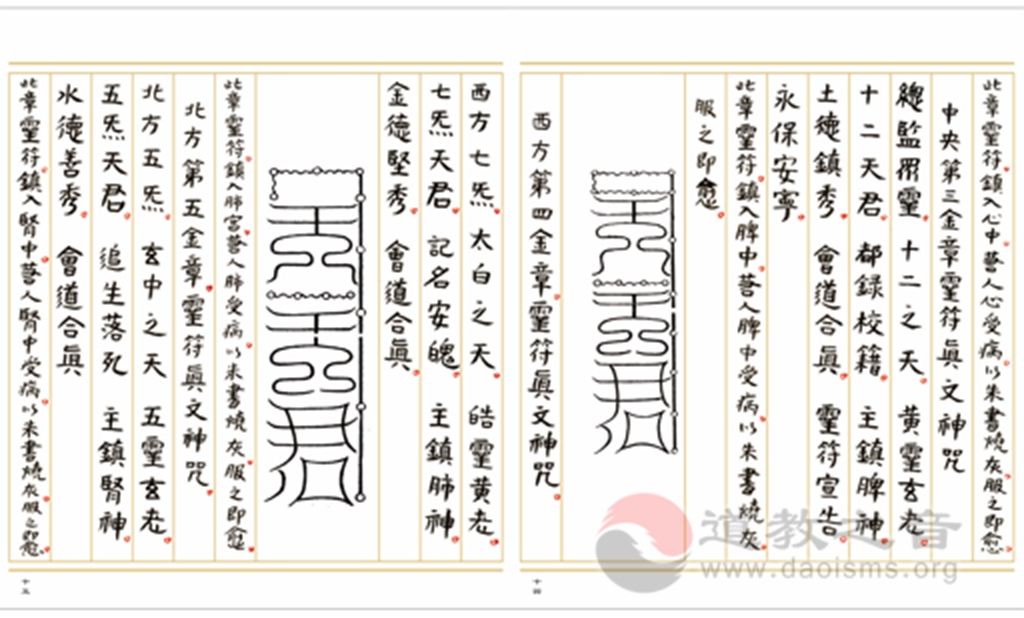 此章靈符鎮入心中菩人心受病以朱書燒灰服之即愈
中央第三金章靈符眞文神咒
總監眾靈 十二之天 黃靈玄老
十二天君 都録校籍 主鎮脾神
土德鎮秀 會道合眞 靈符宣告
永保安寧
此章靈符鎮入脾中菩人脾中受病以朱書燒灰
服之即愈
西方第四金章靈符眞文神咒
十四
西方七炁 太白之天 皓靈黃老
七炁天君 記名安魄 主鎮肺神
金德堅秀 會道合眞
此章靈符鎮入肺宮菩人肺受病以朱書燒灰服之即愈
北方第五金章靈符眞文神咒
北方五炁 玄中之天 五靈玄老
五炁天君 追生落死 主鎮腎神
水德善秀 會道合眞
此章靈符鎮入腎中菩人腎中受病以朱書燒灰服之即愈
十五
道教之音
www.daoisms.org